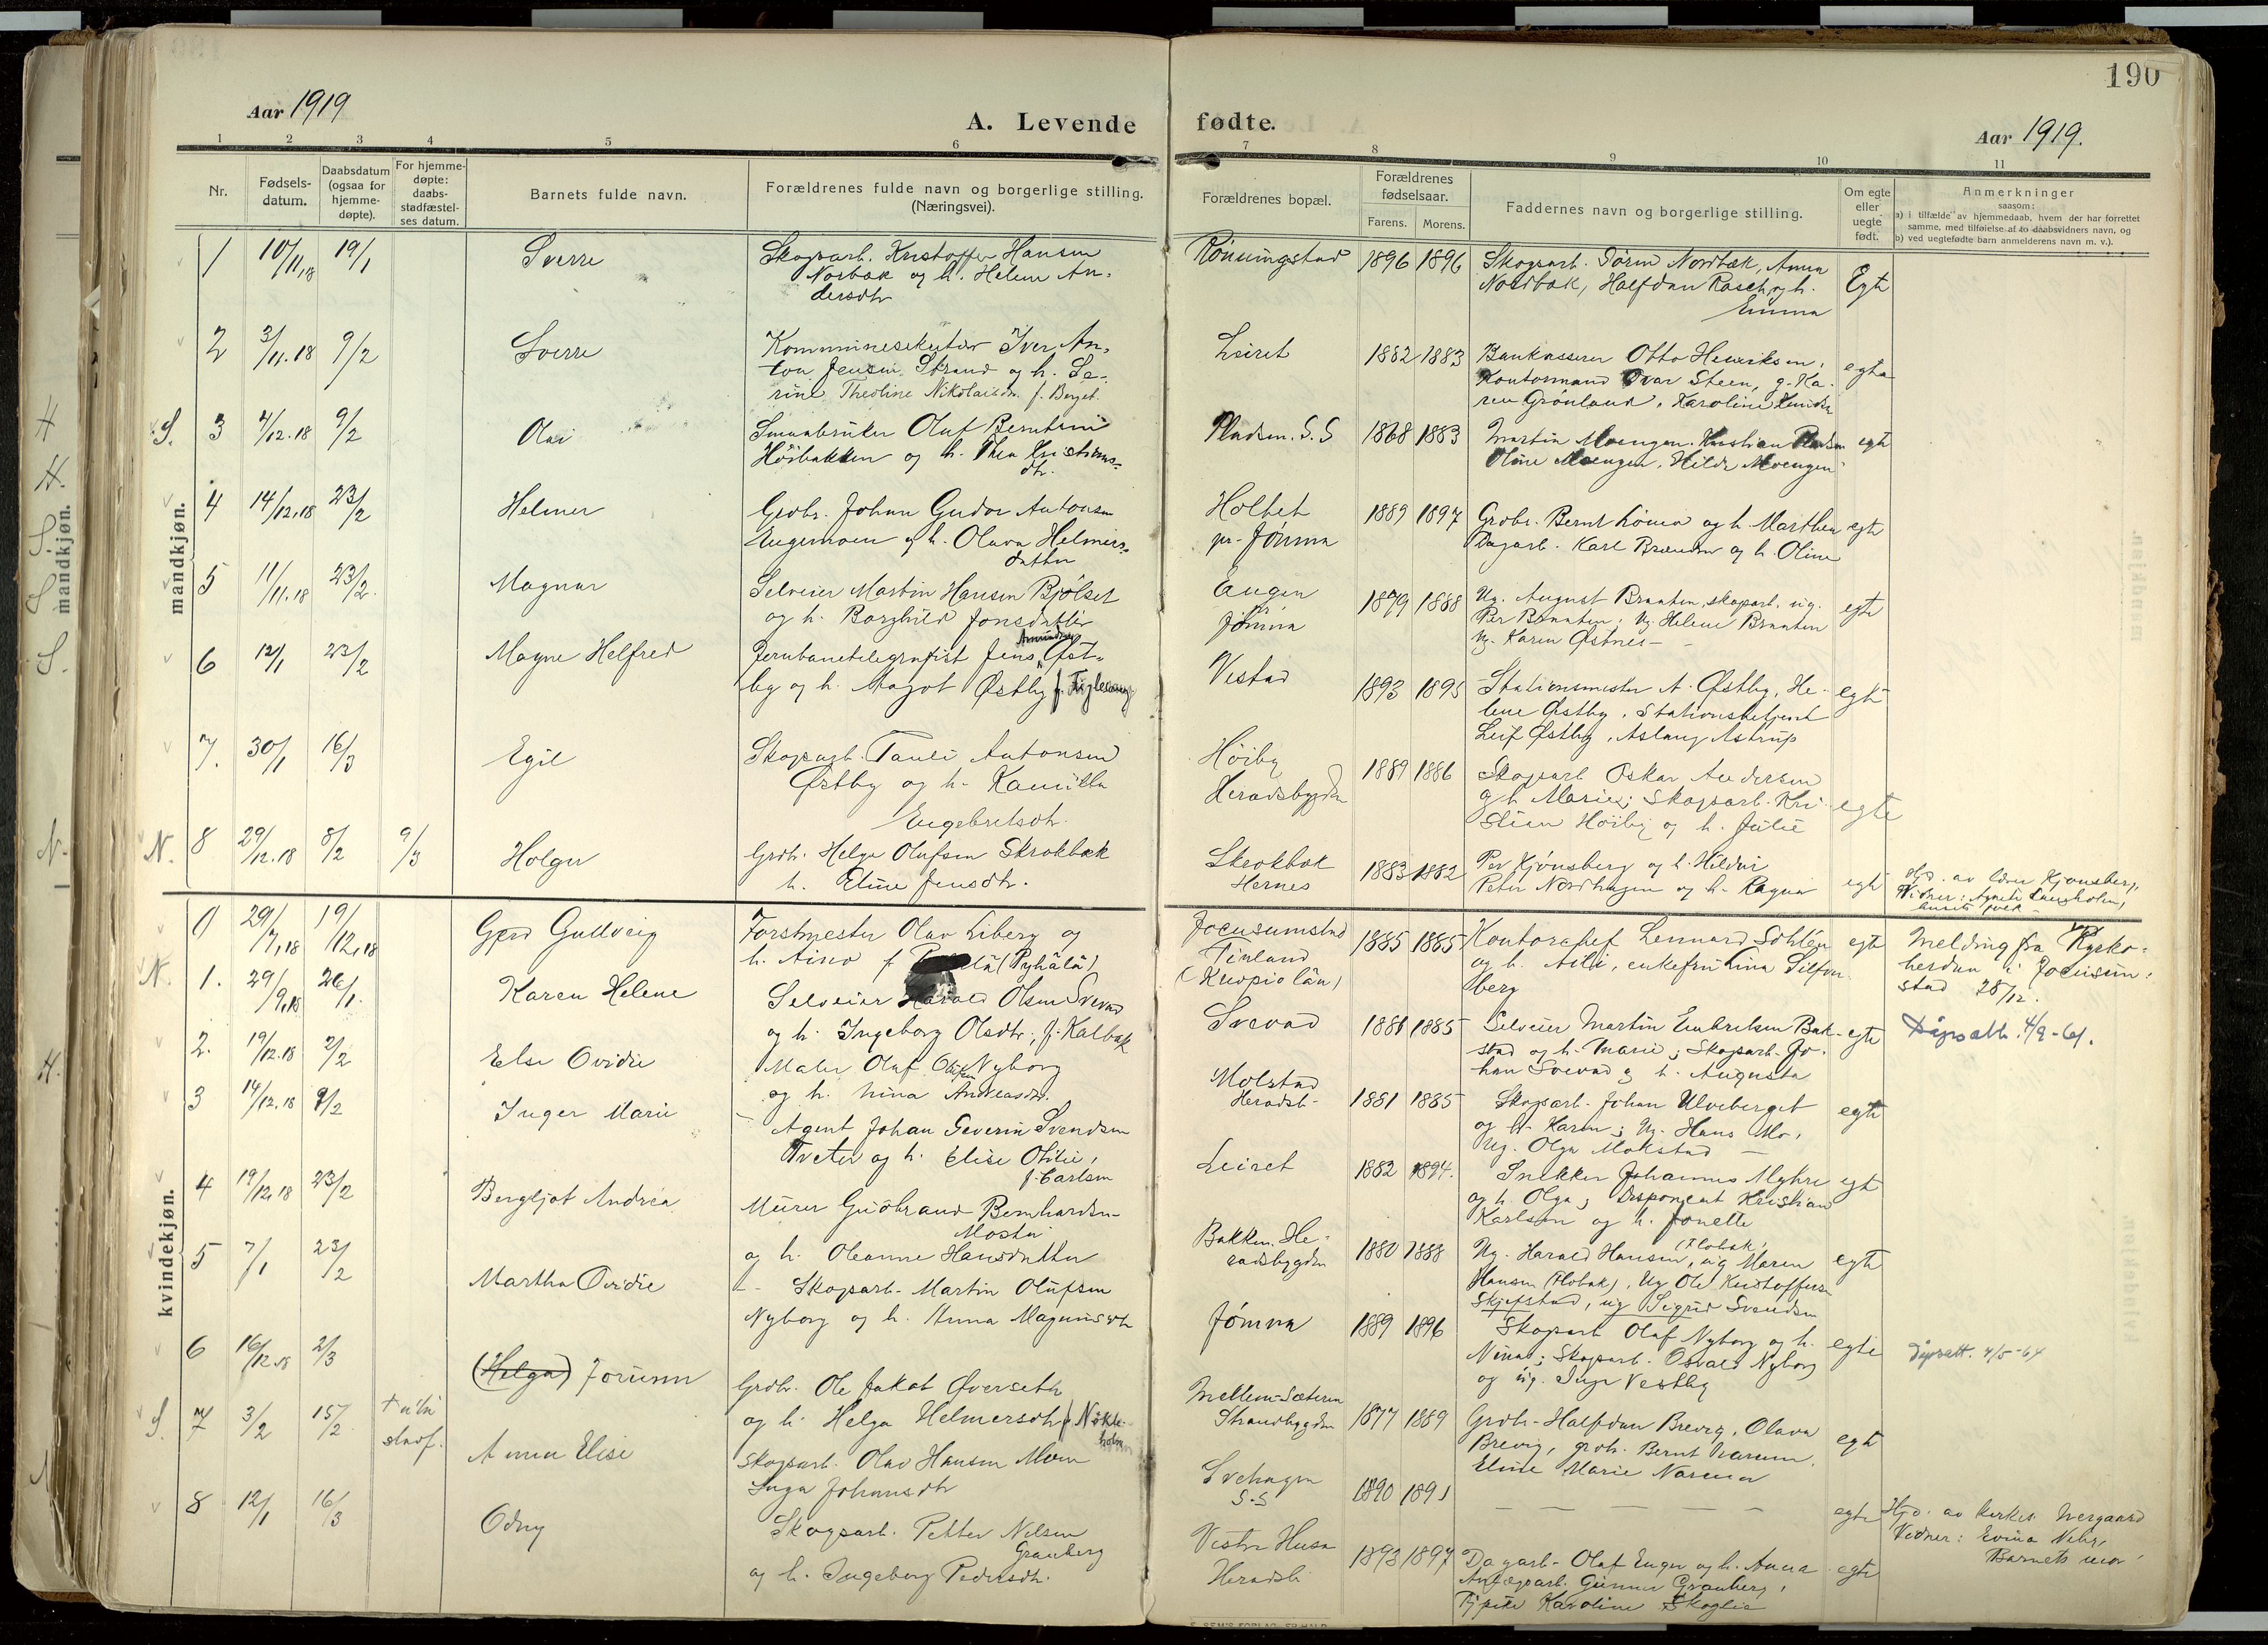 190
Aar 1919
A. Levende fødte.
Aar 1919.
1 2 3 4 5 6 7 8 9 10 11
Nr.
Fødsels-
datum.
Daabsdatum
(ogsaa for
hjemme-
døpte).
For hjemme-
døpte:
daabs-
stadfæstel-
ses datum.
Barnets fulde navn.
Forældrenes fulde navn og borgerlige stilling.
(Næringsvei).
Forældrenes bopæl.
Forældrenes
fødselsaar.
Farens. Morens.
Faddernes navn og borgerlige stilling.
Om egte
eller
uegte
født.
Anmerkninger
saasom:
a) i tilfælde av hjemmedaab, hvem der har forrettet
samme, med tilføielse af to daabsvidners navn, og
b) ved uegtefødte barn anmelderens navn m. v.).
mandkjøn.
1 10/11,18 19/1 Sverre
Skogsarb. Kristoffer Hansen
Norbak og h. Helene An-
dersdtr
Rønningstad 1896 1896
Skogsarb. Nordbæk, Anna
Nordbak, Halfdan Rasch og h.
Emma
Egte
2 3/11.18 9/2 Sverre
Kommunesekretær Iver An-
ton Jensen Strand og h. Se-
rine Theoline Nikolaisdtr. f. Berget.
Leiret 1882 1883
Bankkasserer Otto Henriksen,
Kontormand Ivar Steen, g. Ka-
ren Grønland, Karoline
egte
S. 3 4/12.18 9/2 Olav
Smaabruker Oluf Berntsen
Høibakken og h. Thea Kristians-
dtr.
Pladsen. S.S 1868 1883
Martin Moengen. Kristian Pladsen
Oline Moengen, Hilda Moengen
egte
4 14/12.18 23/2 Helmer
Grdbr. Johan Gudor Antonsen
Engemoen og h. Olava Helmers-
datter
Holtet
pr. Jømna
1889 1897
Grdbr. Bernt Lømo og h. Marthea
Dagarb. Karl Brænden og h. Oline
egte
5 11/11.18 23/2. Magnar
Selveier Martin Hansen Bjølset
og h. Borghild Jonsdatter
Engen
Jømna
1879 1888
Ug. August Braaten, skogsarb. ug.
Per Braaten, Ug. Helene Braaten
Ug. Karen Østnes -
egte
6 12/1 23/2 Magne Helfred
Jernbanetelegrafist Jens Amundsen Øst-
by og h. Magot Østby f.
Vestad 1893 1895
Stationsmester A. Østby, He-
lene Østby, Stationsbetjent
Leif Østby, Aslaug Astrup
egte
7. 30/1 16/3 Egil
Skogsarb. Pauli Antonsen
Østby og h. Kamilla
Engebretsdtr.
Høiby
Heradsbygden
1889 1886
Skogsarb Oskar Andersen
og h. Marie; Skogsarb. Kri-
stian Høiby og h. Julie
egte
N. 8 29/12.18 8/2 9/3 Holger
Grdbr. Helge Olufsen Skrokbæk
h. Eline Jensdtr.
Skrokbæk
Hernes
1883 1882
Per Kjønsberg og h. Hildur
Peter Nordhagen og h. Ragna
egte
Hjd. av lærer Kjønsberg,
Vidner: Agnete
kvindekjøn.
0 29/7,18 19/12,18 Gerd Gullveig
Forstmester Olav Liberg og
h. Aino f. (Pyhälä)
Joensuustad
Finland
(Kuopio län)
1885 1885
Kontorchef Lennard Sohlén
og h. Aili, enkefru Lina Silfven-
berg
egte
Melding fra Kyrko-
herden i Joensuu-
stad 28/12.
N. 1. 29/9,18 26/1. Karen Helene
Selveier Harald Olsen Svevad
og h. Ingeborg Olsdtr, f. Kalbæk
Svevad 1881 1885
Selveier Martin Embretsen Bak-
stad og h. Marie; Skogsarb. Jo-
han Svevad og h. Augusta
egte
Dåpsatt. 4/9-61.
2. 19/12.18 2/2 Else Ovidie
Maler Oluf Olufsen Nyborg
og h. Nina Andreasdtr.
Molstad
Heradsb-
1881 1885
Skogsarb. Johan Ulveberget
og h. Karen; Ug. Hans Mo,
Ug. Olga Mokstad -
egte
3 14/12.18 9/2 Inger Marie
Agent Johan Severin Svendsen
Tveter og h. Elise Otilie,
f. Carlsen
Leiret 1882 1894.
Snekker Johannes Myhre
og h. Olga; Disponent Kristian
Karlsen og h. Jonette
egte
4 19/12.18 23/2 Bergljot Andrea
Murer Gudbrand Bernhardsen
Mostu
og h. Oleanne Hansdatter
Bakken. He-
radsbygden
1880 1888
Ug. Harald Hansen (Flobak), ug Maren
Hansen (Flobak), Ug Ole Kristoffersen
Skjefstad, ug Sigrid Svendsen
egte
5 7/1 23/2 Martha Ovidie
Skogsarb. Martin Olufsen
Nyborg og h. Anna Magnusdtr
Jømna 1889 1896
Skogsarb Olaf Nyborg og h.
Nina; Skogsarb. Osvald Nyborg
og ug. Inga Vestby
egte
6 16/12.18 2/3 (Helga) Jorunn
Grdbr. Ole Jakob Øverseth
og h. Helga Helmersdtr f. Nøkle-
holm
Mellem-Sæteren
Strandbygden
1877 1889
Grdbr. Halfdan Brevig, Olava
Brevig, grdbr. Bernt Narmoen.
Eline Marie Narmoen
egte
Dåpsatt. 4/5-64
S. 7 3/2 15/2. † uten
stadf.
Anna Elise
Skogsarb. Olav Hansen Moen
Inga Johansdtr
Svehagen
S.S
1890 1891
— — — — —
egte
Hjd. av kirkes. Nergaard
Vidner:
Barnets mor.
8 12/1 16/3 Odny
Skogsarb. Petter Nilsen
Granberg
og h. Ingeborg Pedersdtr.
Vestre Husa
Heradsb.
1893 1897
Dagarb. Olaf Enger og h. Anna
Anlægsarb. Gunnar Granberg,
Tjpike Karoline Skoglie
egte